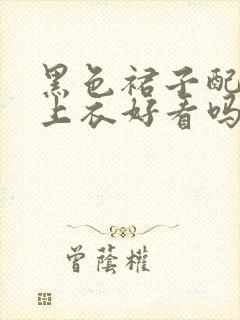 黑色裙子配
上衣好看吗
曾蔭權